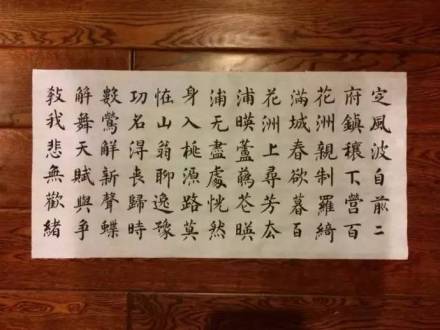 㝎風波自前二
府鎮穰下營百
花洲親制羅綺
滿城春欲暮百
花洲上尋芳厺
浦暎蘆暎
浦无盡處恍然
身入桃源路莫
恠山翁聊逸豫
功名得喪歸時
數鶯解新聲蝶
解舞天賦與爭
教我悲無歡緒